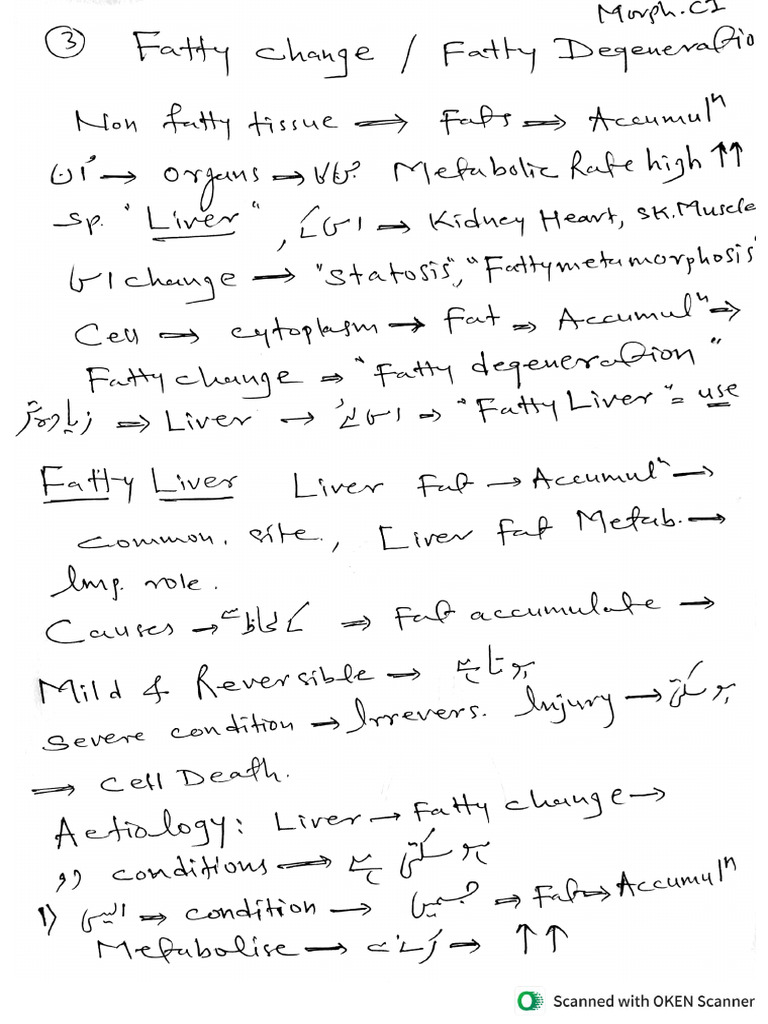 Morph. CI
③ Fatty change / Fatty Degeneratio
Non fatty tissue ⇒ Fats ⇒ Accumulⁿ
اُن → organs → جنکا Metabolic Rate high ↑↑
sp. "Liver", اسکے → Kidney Heart, SK. Muscle
اس change → "Statosis", "Fattymetamorphosis"
Cell → cytoplasm → Fat ⇒ Accumulⁿ ⇒
Fatty change ⇒ "Fatty degeneration"
زیادہ تر ⇒ Liver → اسکے لئے ⇒ "Fatty Liver" = use
Fatty Liver Liver Fat → Accumulⁿ →
common. site., Liver fat Metab. →
Imp. role.
Causes → کے لحاظ سے ⇒ Fat accumulate →
Mild & Reversible → ہوتا ہے
Severe condition → Irrevers. Injury → ہوسکتی
⇒ Cell Death.
Aetiology: Liver → Fatty change →
دو conditions ⇒ ہوسکتی ہے
1) ایسی ⇒ condition → جسمیں ⇒ Fat → Accumulⁿ
Metabolise → کرنے → ↑↑
Scanned with OKEN Scanner